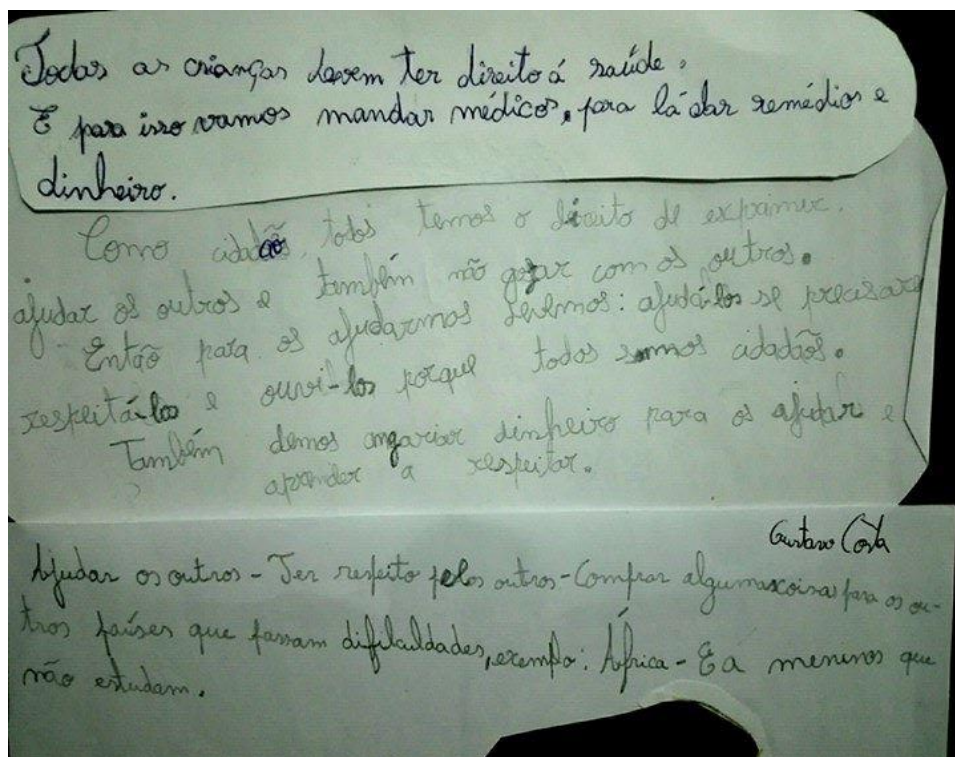 Todas as crianças devem ter direito á saúde.
E para isso vamos mandar médicos, para lá dar remédios e
dinheiro.
Como cidadão, todos temos o direito de expramer.
ajudar os outros e também não gozar com os outros.
Então para os ajudarmos devemos: ajudá-los se precisare
respeitá-los e ouvi-los porque todos somos cidadãos.
Também demos angariar dinheiro para os ajudar e
aprender a respeitar.
Gustavo Costa
Ajudar os outros - Ter respeito pelos outros - Comprar algumas coisas para os ou-
tros países que passam dificuldades, exemplo: África - E a meninos que
não estudam.